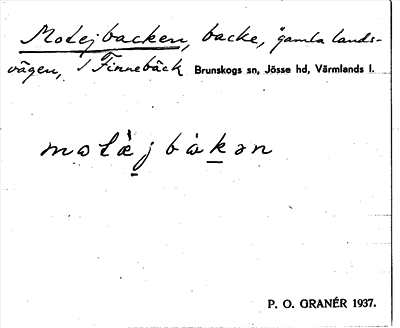 Motejbacken, backe, "gamla lands-
vägen, i Finnebäck Brunskogs sn, Jösse hd, Värmlands l.
motæ̀jbàkən
P. O. GRANÉR 1937.